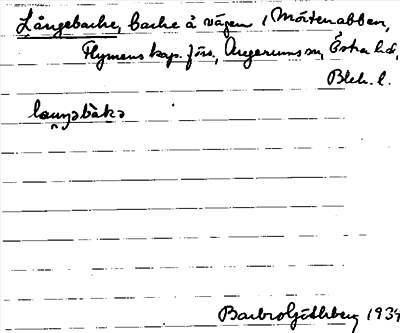 Långebacke, backe å vägen i Mörtenabben,
Flymens kap. förs., Augerums sn, Östra hd,
Blek. l.
Barbro Götherberg 1934